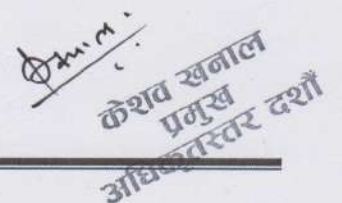 केशव खनाल
प्रमुख
अधिकृतस्तर दशौं